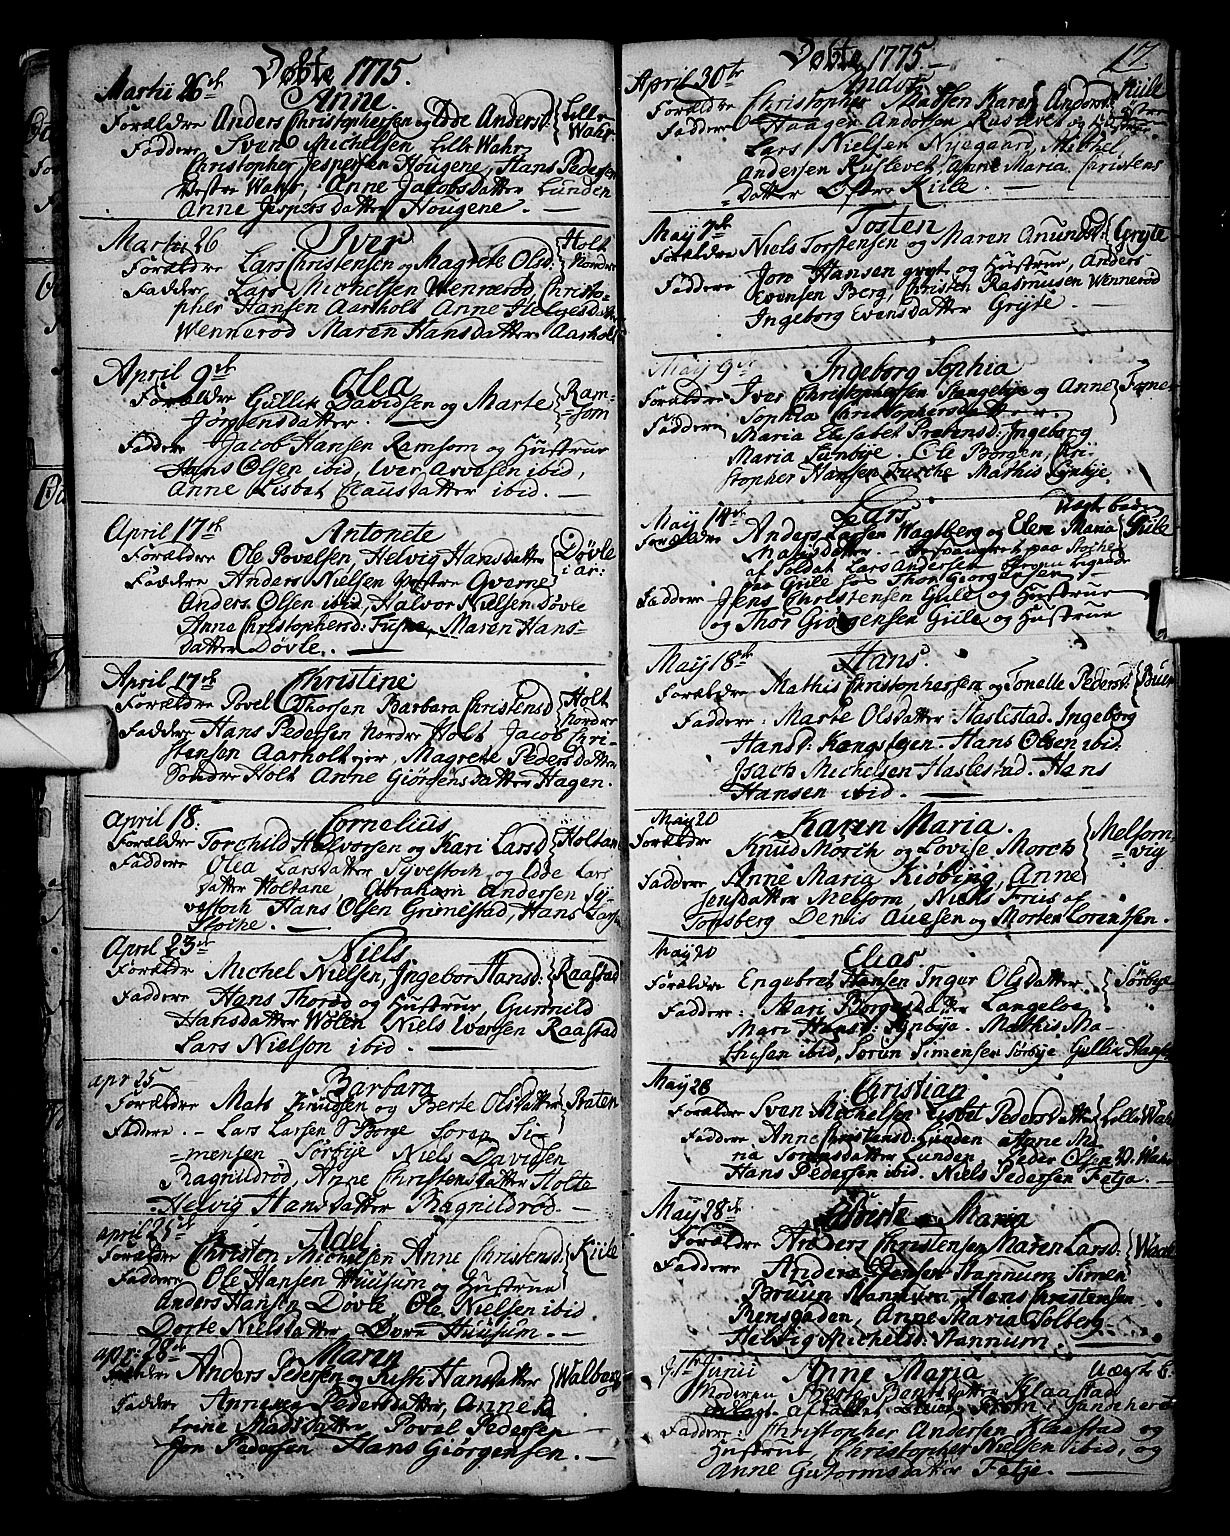 Døbte 1775.
Martii 26de
Anne.
Forældre Anders Christophersen og Edde Andersd: Lille Wahr
Faddere Sven Michelsen Lille Wahr
Christopher Jespersen Hougene, Hans Pedersen
Vestre Wahr, Anne Jacobsdatter Lunden
Anne Jespersdatter Hougene. —
Martii 26
Iver
Forældre Lars Christensen og Magrete Olsd: Holt Nordre
Faddere Lars Michelsen Wennerød Christo-
pher Hansen Aarholt Anne Helgesdatter
Wennerød Maren Hansdatter Aarholt
April 9de
Olea
Forældre Gullik Davidsen og Marte Ram-
Jørgensdatter. — =som
Faddere Jacob Hansen Ramsom og Hustrue
Hans Olsen ibid, Iver Arvesen ibid,
Anne Lisbet Clausdatter ibid. —
April 17de
Antonite
Forældre Ole Povelsen, Helvig Hansdatter Døvle
Faddere Anders Nielsen Vestre Qverne
Anders Olsen ibid, Halvor Nielsen Døvle
Anne Christophersd: Fusne, Maren Hans-
datter Døvle. —
April 17de
Christine
Forældre Povel Thorsen Barbara Christensd Holt Nordre
Faddere Hans Pedersen Nordre Holt Jacob Chri-
stensen Aarholt, Magrete Pedersdatter
Søndre Holt Anne Giørgensdatter Hagen.
April 18.
Cornelius
Forældre Torchild Halvorsen og Kari Larsd Holtan
Faddere Olea Larsdatter Syvestoch og Edde Lars
datter Holtane, Abraham Andersen Sy-
vestoch Hans Olsen Grimestad, Hans Larsen
Stoche. —
April 23de
Niels
Forældr Michel Nielsen, Ingebor Hansd: Raastad
Faddere Hans Thorød og Hustrue, Gunnild
Hansdatter Wolen Niels Iversen Raastad
Lars Nielson ibid. —
apr 25
Barbara
Forældre Mats Knudsen og Berte Olsdatter Braten
Fadere. - Lars Larsen Borge Søren Si-
=mensen Sørbye Niels Davidsen
Ragnildrød, Anne Christensdatter Holte
Helvig Hansdatter Ragnildrød.
april 25de
Adel
Forældre Christen Michelsen Anne Christensd: Kiile
Faddere Ole Hansen Huusum og Hustrue
Anders Hansen Døvle, Ole Nielsen ibid.
Dorte Nielsdatter Øvre Huusum. —
apr: 28de
Maren
Anders Pedersen og Hansdatter Walberg
Faddere Pedersdatter, Anne Ca
trine Madsdatter Povel Pedersen
Jon Pedersen Hans Giørgensen. —
Døbte 1775.
17.
April 30te
Anders
Forældre Christopher Madsen Karen Andersd: Kiile
Faddere Haagen Andersen Ruslevet og Hustrue
Lars Nielsen Nyegaard, Michel
Andersen Ruslevet, Anne Maria Christens
=Datter Østre Kiile. —
May 7de
Tosten
Forældre Niels Torstensen og Maren Anundsd: Gryte
Faddere Jon Hansen gryte og Hustrue, Anders
Evensen Berg, Christen Rasmusen Wennerød
Ingeborg Evensdatter Gryte.
May 9de
Ingeborg Sophia
Forældre Iver Christophersen Stangebye og Anne
Sophia Christophersdatter
Faddere Maria Elisabet Prebensd: Ingeborg
Maria Sunbye. Ole Borgen, Chri-
stopher Hansen Mathis Synbye.
May 14de
Lars
Uægte barn
Forældre Anders Larsen Waglberg og Elen Maria Giile
datter - Besvangret paa Stoche
af Soldat Lars Andersen
paa Giile hos Thor Giørgensen
Faddere Jens Christensen Guld og Hustrue
og Thor Giørgensen Giile og Hustrue
May 18de
Hans.
Forældre Mathis Christophersen og Tonette Pedersd: Buun
Faddere: Marte Olsdatter Haslestad. Ingeborg
Hansd: Kongsteen. Hans Olsen ibid.
Isach Michelsen Haslestad. Hans
Hansen ibid. —
May 20
Karen Maria.
Forældre Knud Morch og Lovise Morch Melsom=vig
Faddere Anne Maria Kiøbing, Anne
Jensdatter Melsom, Niels Friis af
Tønsberg Denis Auesen og Morten Lorentsen.
May 20
Elias.
Forældre Engebret Hansen Ingur Olsdatter. Sørbye
Faddere: Mari Borgersdatter Langeloe
Mari Hansd: Synbye. Mathis Ma-
thisen ibid, Sorun Simensen Sørbye Gullik Hansen
May 28
Christian
Forældre Sven Michelsen Lisbet Pedersdatter Lille Wahr
Faddere Anne Christensd: Lunden Anne Ma-
ria Sørensdatter Lunden Peder Olsen V. Wahr
Hans Pedersen ibid. Niels Pedersen Fetja. —
May 28de
Maria
Forældre Anders Christensen Maren Larsd:
Faddere Anders Jensen Stannum, Simen
Bruun Stannum, Hans Christensen
Rensgaden, Anne Maria Solberg
Helvig Michelsd: Stannum.
1te Junii
Anne Maria
Uægte b.
Moderen Berte Bentsdatter Klaastad
Faddere: Christopher Andersen Klaastad og
Hustrue Christopher Nielsen ibid, og
Anne Gutormsdatter Fetje. —